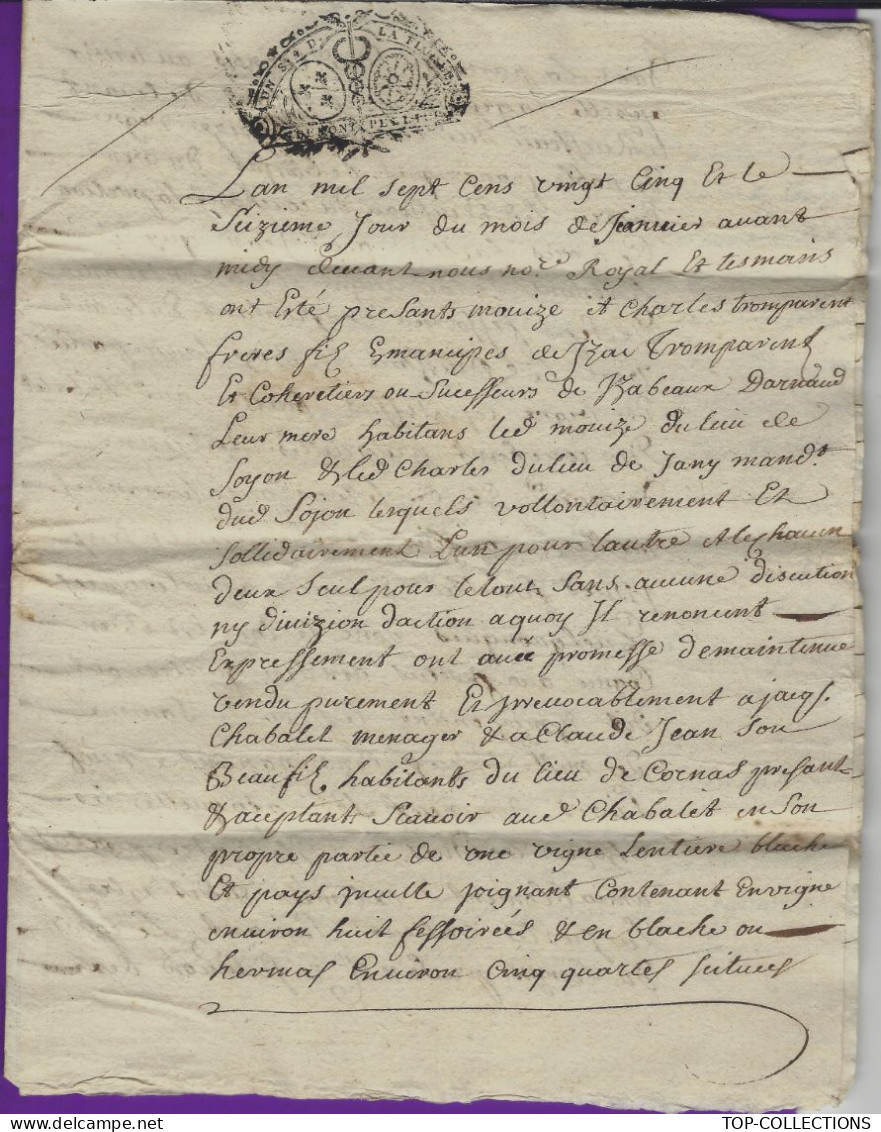 UN S. 2 D. LA FEUILLE
DE MONTPELLIER
Lan mil sept Cens vingt Cinq Et le
Seizieme Jour du mois de Janvier avant
midy devant nous nore Royal Et tesmoins
ont Esté presants mouize et Charles tromparent
freres filz Emancipes de Izac Tromparent
Et Coheretiers ou Sucesseurs de Izabeaux Darnaud
Leur mere habitans led mouize du lieu de
Soyon & led Charles du lieu de Jany mandt
dud Sojon lesquels vollontairement Et
Sollidairement Lun pour lautre et le chacun
deux seul pour le tout sans aucune discution
ny divizion daction a quoy Il renoncent
Expressement ont avec promesse de maintenue
vendu purement Et jrrevocablement a jacqs
Chabalet menager & a Claude Jean son
Beau filz habitants du lieu de Cornas presant
& aceptants Scavoir aud Chabalet en son
propre partie de une vigne Lentiere blache
Et pays jnculte joignant Contenant En vigne
environ huit fessoirées & en blache ou
hermas Environ Cinq quartes scitues
TOP-COLLECTIONS